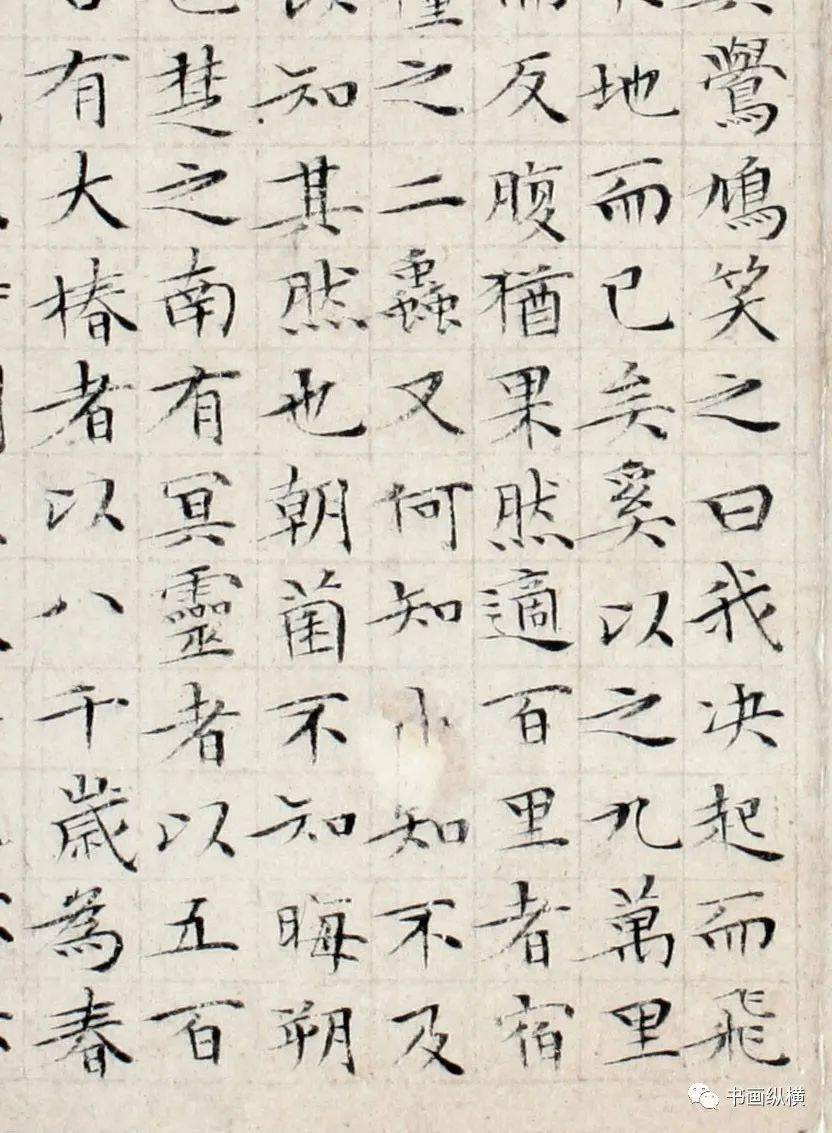 鷽鳩笑之曰我决起而飛
地而已矣奚以之九萬里
而反腹猶果然適百里者宿
之二蟲又何知小知不及
知其然也朝菌不知晦朔
楚之南有冥靈者以五百
有大椿者以八千歲為春
书画纵横